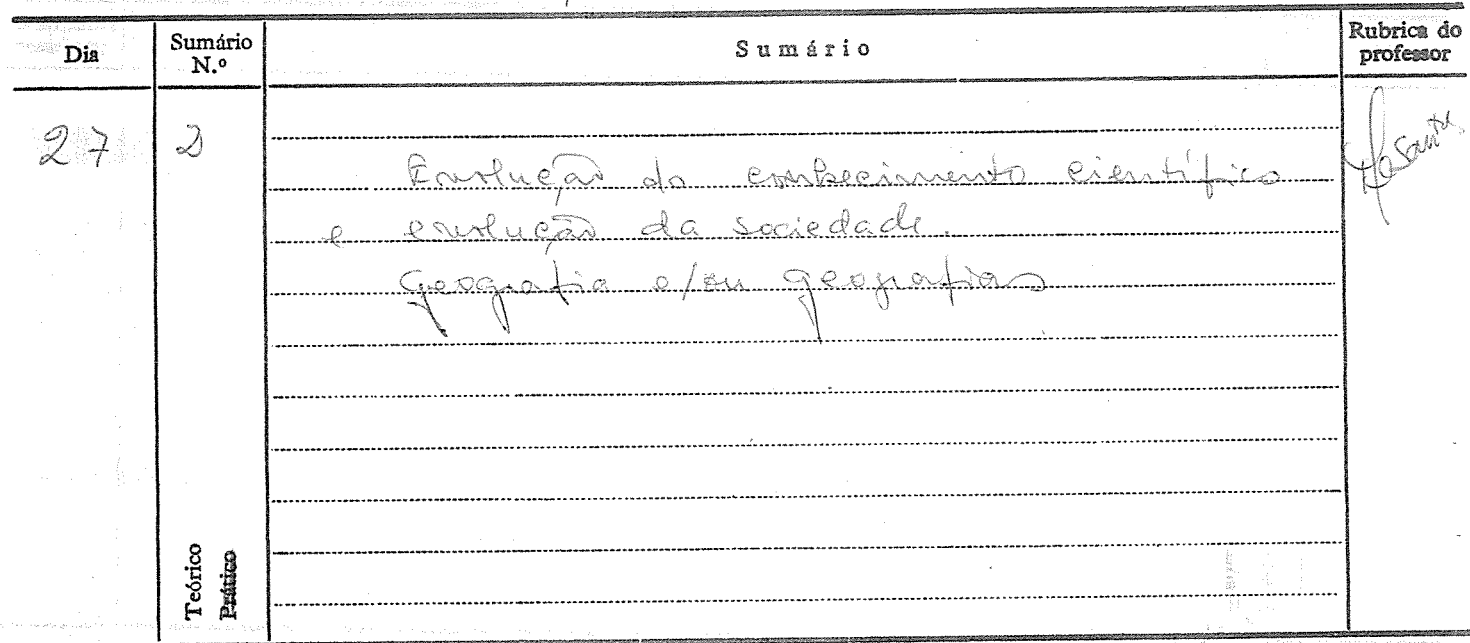 Dia Sumário N.º Sumário Rubrica do professor
27 2
Evolução do conhecimento científico
e evolução da sociedade.
Geografia e/ou geografias
Teórico
Prático